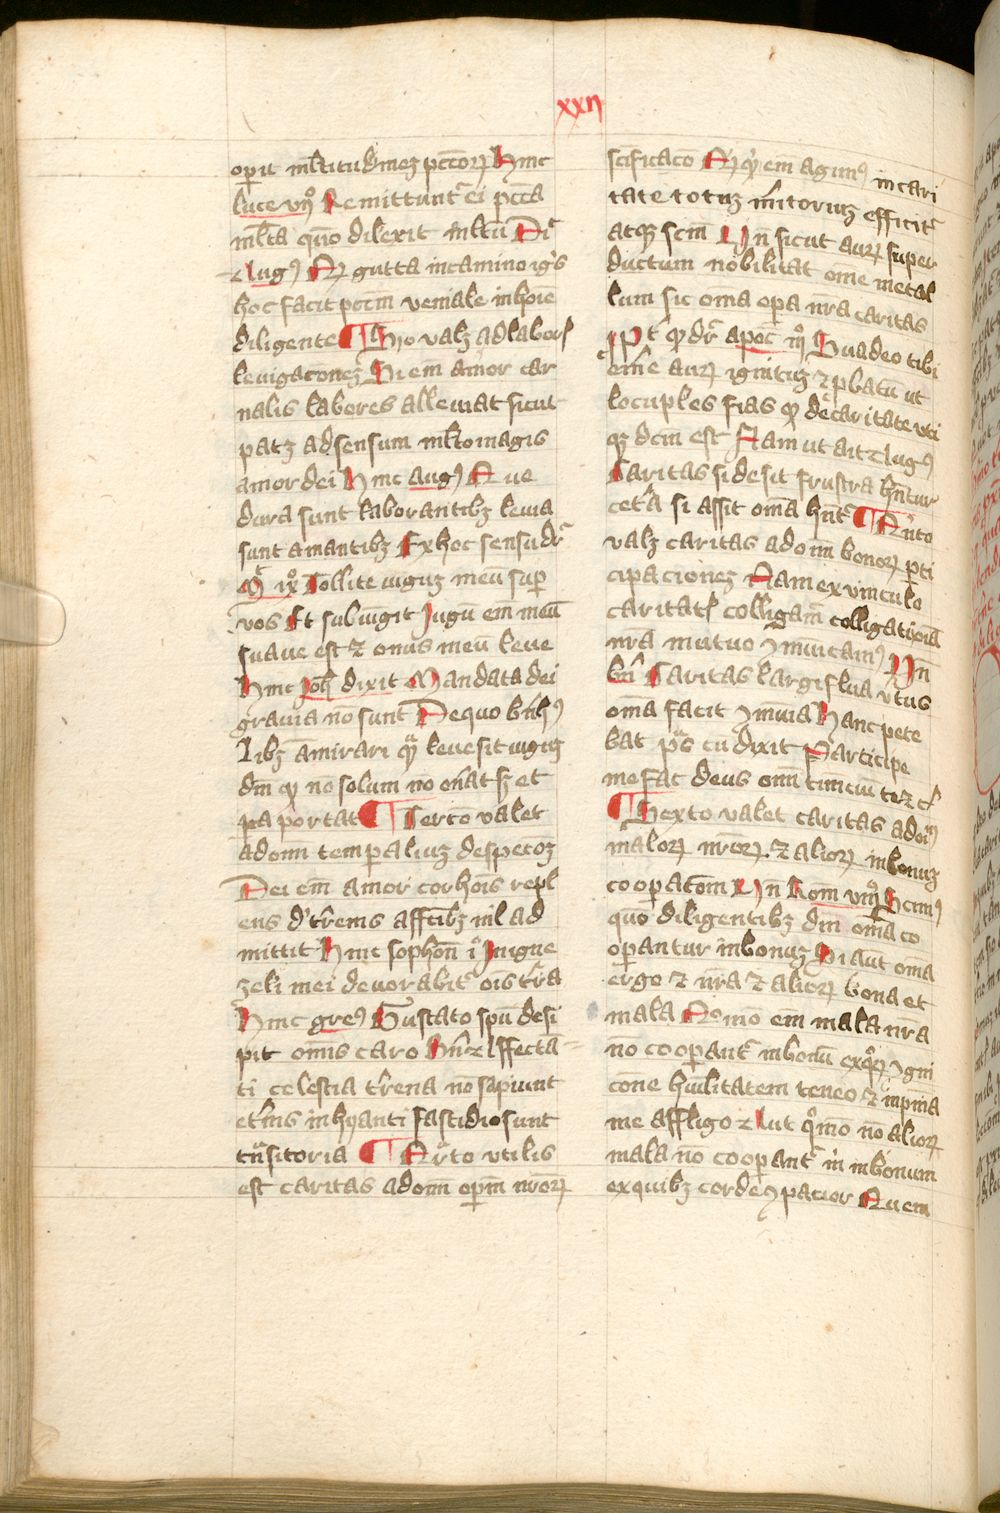 xxii
opit mltitudinez pctorꝝ Hinc
luce viiº Remittuntr ei pcca
mlta quo dilexit mltu Dic
Augꝰ Qꝫ gutta in camino igīs
hoc facit pctm veniale in hoie
diligente ¶ Sco valꝫ ad laborꝭ
leuigaconeꝫ Si em amor car
nalis labores alleuiat sicut
patꝫ ad sensum mlto magis
amor dei Hinc augꝰ Que
dura sunt laborantibꝫ leuia
sunt amantibꝫ Ex hoc sensu dr
Mt ixº Tollite iuguꝫ meū sup
vos Et subiūgit Jugū em meū
suaue est ⁊ onus meū leue
Hinc Joh dixit Mandata dei
grauia nō sunt De quo bnhꝰ
Libꝫ amirari qꝫ leue sit iuguꝫ
dm qꝫ nō solum nō onat sꝫ et
pa portat ¶ Tercō valet
ad om temporaliuꝫ despectoꝫ
Dei em amor cor hois repl
ens d' trenis affctibꝫ nil ad
mittit Hinc sophon iº In igne
zeli mei deuorabitr ois tra
Hinc greꝰ Gustato spu desi
pit omis caro
ti celestia trena nō sapiunt
etnis inhyanti fastidio sunt
tnsitoria ¶ Qrto vtilis
est caritas ad om opm nrorꝫ
scificaco Qꝫ qꝫ em agimꝰ in cari
tate totuꝫ mitoriuꝫ efficitr
atqꝫ scm Vn sicut aurꝫ super
ductum nobilitat ome metal
lum sic oma opa nra caritas
Pt qꝫ dr apoc iiiº Suadeo tibi
eme aurꝫ ignituꝫ ⁊ pbatū ut
locuples fias qꝫ de caritate vti
qꝫ dcm est Nam ut ait Augꝰ
Caritas si desit frustra hntur
cetra si assit oma hntr ¶ Qnto
valꝫ caritas ad om bonorꝫ pti
cipacionez Nam ex vinculo
caritatꝭ colligam colligati oia
nra mutuo ꝯmuicamꝰ Vn
bn Caritas largiflua vtus
oma facit ꝯmuia Hanc pete
bat ps cū dixit Particpe
me fac deus omi timciū te ⁊c
¶ Sexto valet caritas ad oim
malorꝫ nrorꝫ ⁊ aliorꝫ in bonuꝫ
coopatom Vn Rom viiiº Scimꝰ
quo diligentibꝫ dm oma co
operantur in bonuꝫ Si aut oma
ergo ⁊ nra ⁊ aliorꝫ bona et
mala Nomo em mala nra
nō coopantr in bonū ex qꝫ ꝯgni
cone huilitatem teneo ⁊ in pnia
me affligo Aut qmo nō aliorꝫ
mala nō coopantr m in bonum
ex quibꝫ corde ꝯpatior Quem